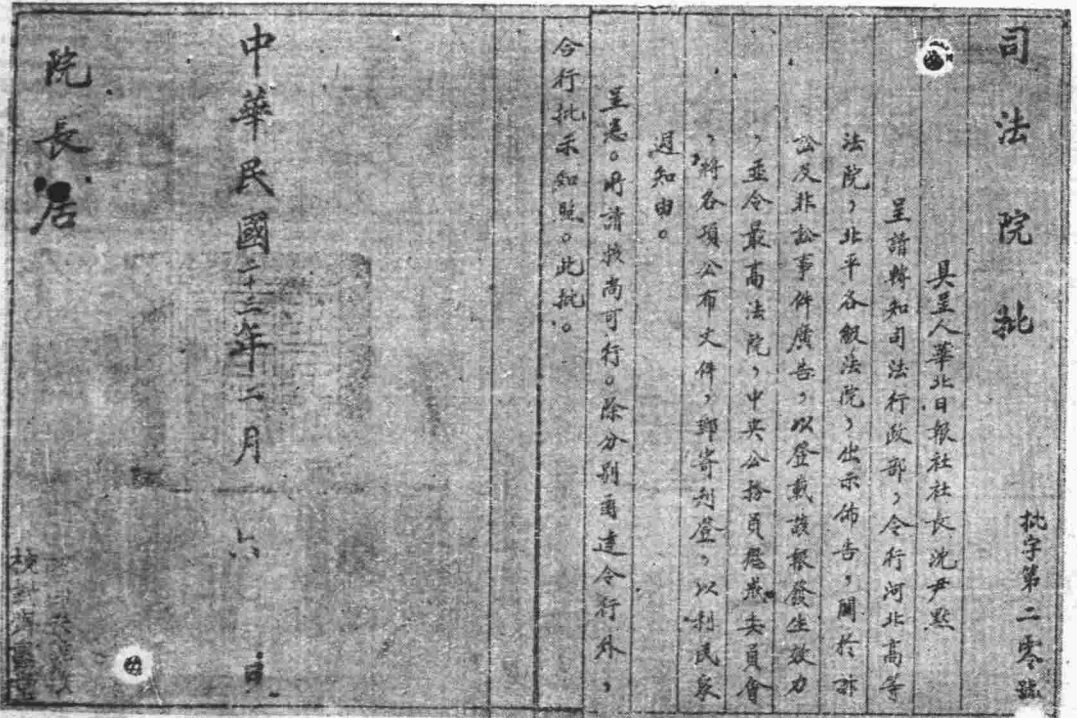 司法院批
批字第二零號
具呈人華北日報社社長沈尹默
呈請轉知司法行政部,令行河北高等
法院,北平各級法院,出示佈告,關於訴
訟及非訟事件廣告,以登載該報發生效力
,並令最高法院,中央公務員懲戒委員會
,將各項公布文件,郵寄刊登,以利民衆
週知由。
呈悉。所請核尚可行。除分別函達令行外,
合行批示知照。此批。
中華民國二十三年二月六日
院長居